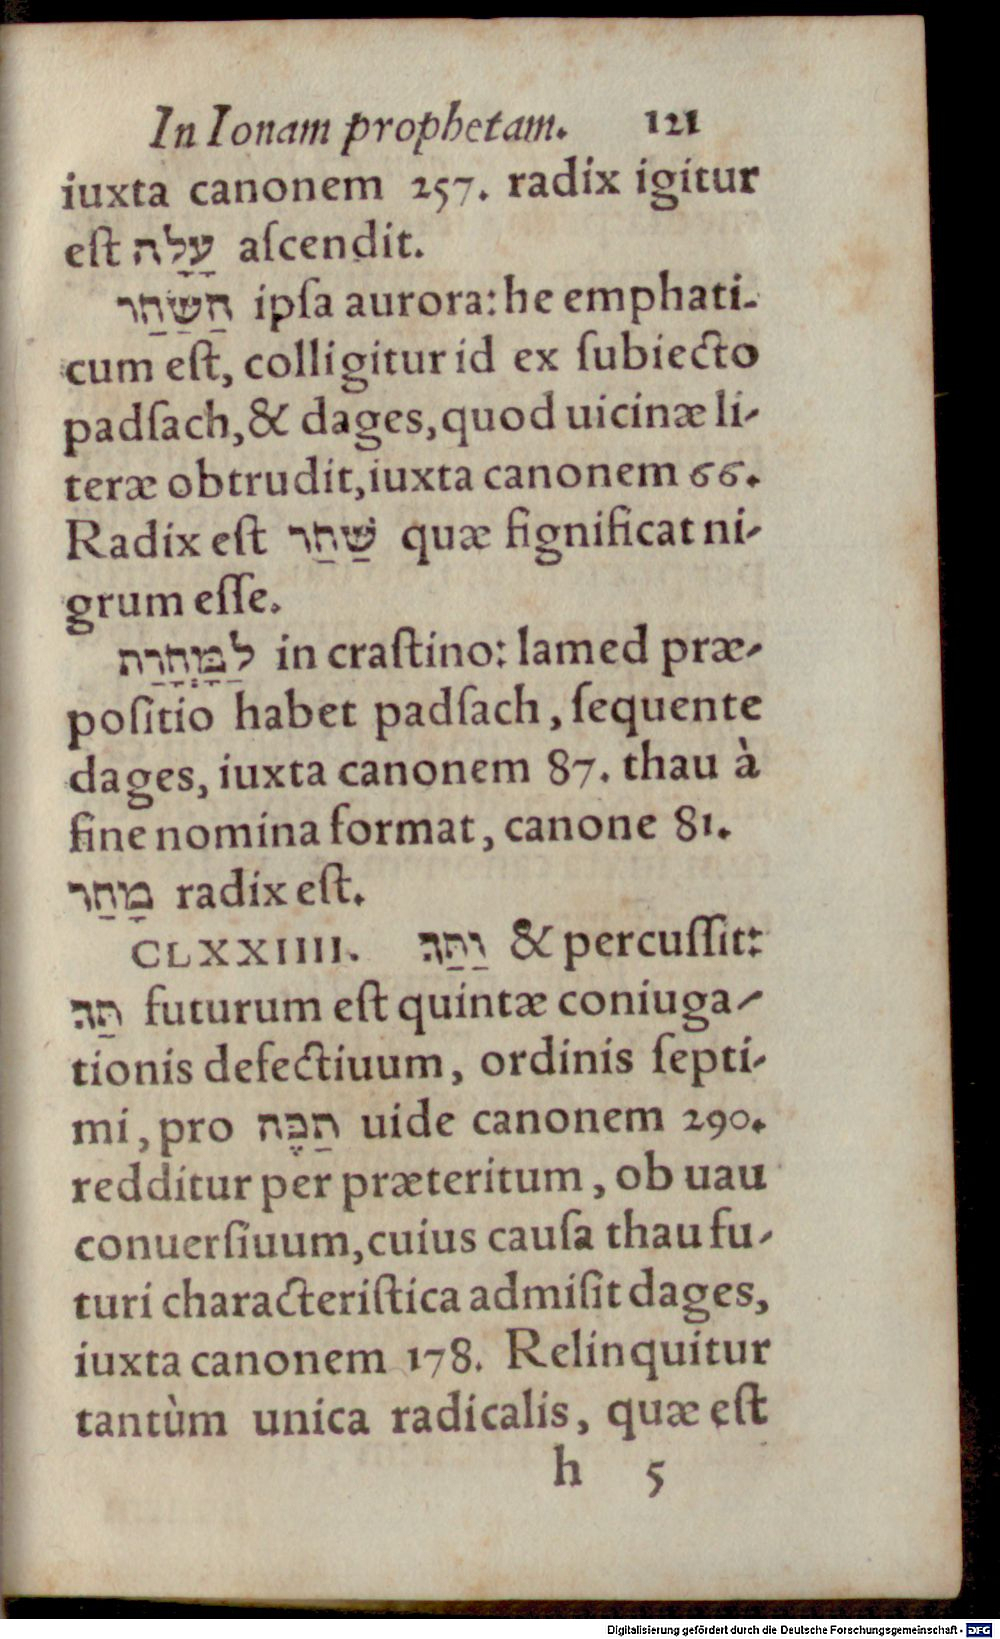 In Ionam prophetam. 121
iuxta canonem 257. radix igitur
eſt עָלָה aſcendit.
הַשַּׁחַר ipſa aurora: he emphati-
cum eſt, colligitur id ex ſubiecto
padſach, & dages, quod uicinæ li-
teræ obtrudit, iuxta canonem 66.
Radix eſt שַׁחַר quæ ſignificat ni-
grum eſſe.
לַמָּחֳרַת in craſtino: lamed præ-
poſitio habet padſach, ſequente
dages, iuxta canonem 87. thau à
fine nomina format, canone 81.
מָחַר radix eſt.
CLXXIIII. וַתַּךְ & percuſſit:
תַּךְ futurum eſt quintæ coniuga-
tionis defectiuum, ordinis ſepti-
mi, pro תַכֶּה uide canonem 290.
redditur per præteritum, ob uau
conuerſiuum, cuius cauſa thau fu-
turi characteriſtica admiſit dages,
iuxta canonem 178. Relinquitur
tantùm unica radicalis, quæ eſt
h 5
Digitalisierung gefördert durch die Deutsche Forschungsgemeinschaft - DFG